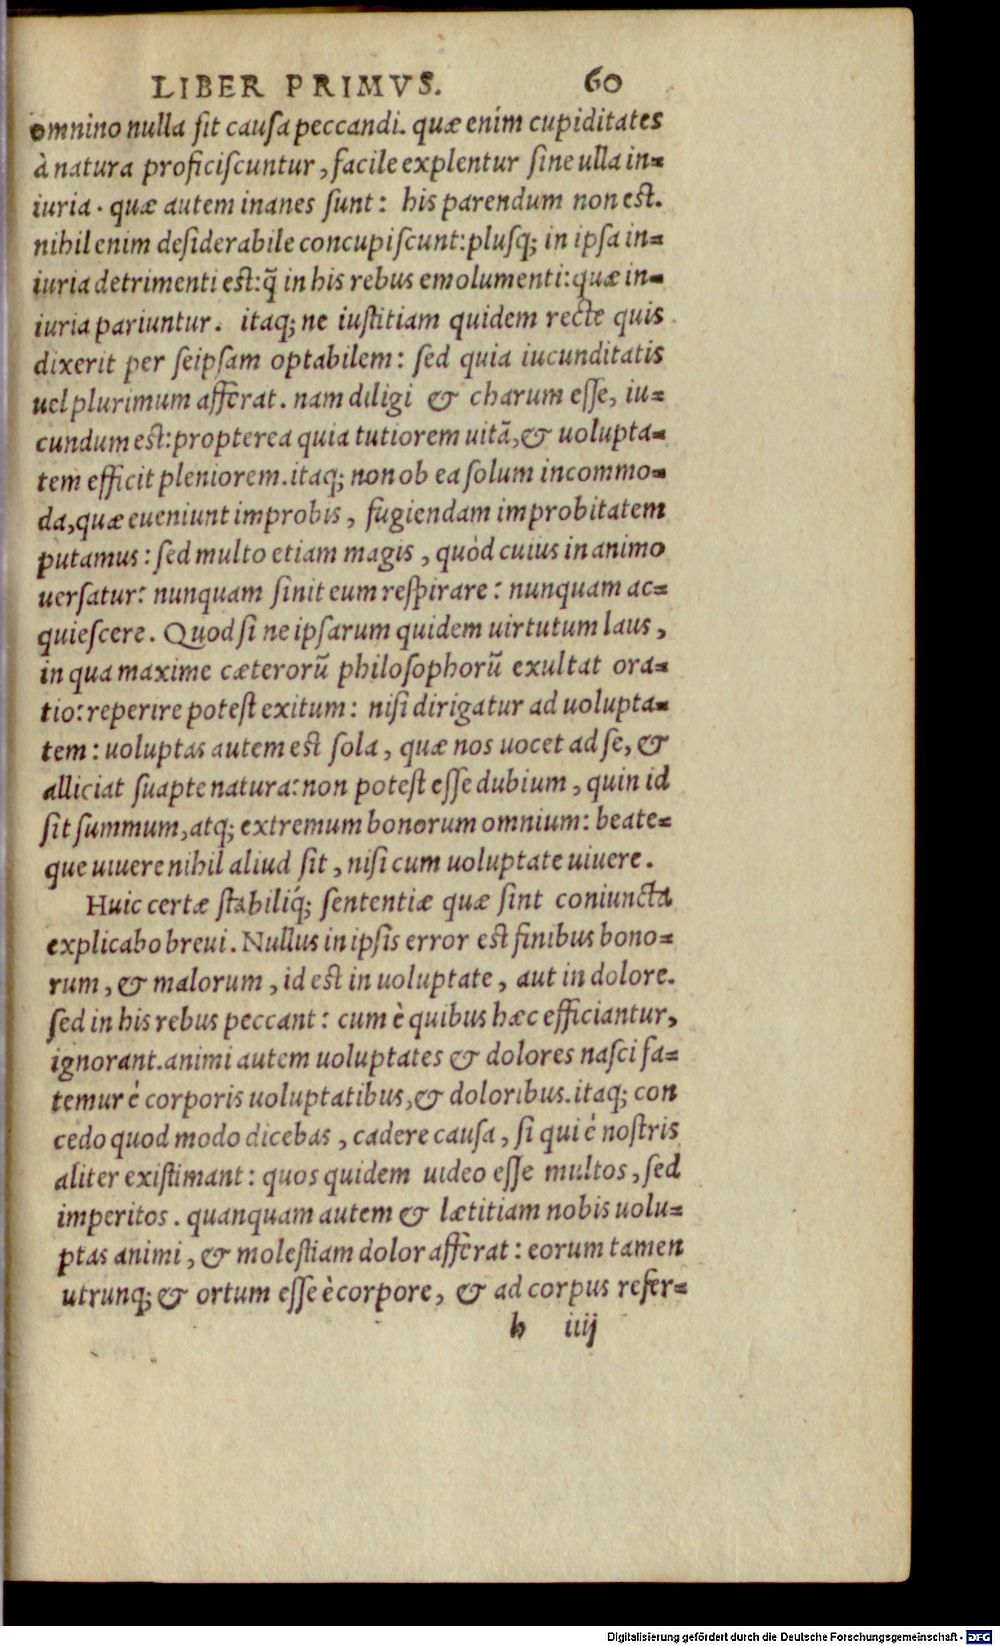 LIBER PRIMVS. 60
omnino nulla sit causa peccandi. quæ enim cupiditates
à natura proficiscuntur, facile explentur sine ulla in=
iuria. quæ autem inanes sunt: his parendum non est.
nihil enim desiderabile concupiscunt: plusq; in ipsa in=
iuria detrimenti est: q̃ in his rebus emolumenti: quæ in=
iuria pariuntur. itaq; ne iustitiam quidem recte quis
dixerit per seipsam optabilem: sed quia iucunditatis
uel plurimum afferat. nam diligi & charum esse, iu=
cundum est: propterea quia tutiorem uitã, & uolupta=
tem efficit pleniorem. itaq; non ob ea solum incommo=
da, quæ eueniunt improbis, fugiendam improbitatem
putamus: sed multo etiam magis, quòd cuius in animo
uersatur: nunquam sinit eum respirare: nunquam ac=
quiescere. Quod si ne ipsarum quidem uirtutum laus,
in qua maxime cæterorũ philosophorũ exultat ora=
tio: reperire potest exitum: nisi dirigatur ad uolupta=
tem: uoluptas autem est sola, quæ nos uocet ad se, &
alliciat suapte natura: non potest esse dubium, quin id
sit summum, atq; extremum bonorum omnium: beate=
que uiuere nihil aliud sit, nisi cum uoluptate uiuere.
Huic certæ stabiliq́; sententiæ quæ sint coniuncta
explicabo breui. Nullus in ipsis error est finibus bono=
rum, & malorum, id est in uoluptate, aut in dolore.
sed in his rebus peccant: cum è quibus hæc efficiantur,
ignorant. animi autem uoluptates & dolores nasci fa=
temur è corporis uoluptatibus, & doloribus. itaq; con
cedo quod modo dicebas, cadere causa, si qui è nostris
aliter existimant: quos quidem uideo esse multos, sed
imperitos. quanquam autem & lætitiam nobis uolu=
ptas animi, & molestiam dolor afferat: eorum tamen
utrunq; & ortum esse è corpore, & ad corpus refer=
h iiij
Digitalisierung gefördert durch die Deutsche Forschungsgemeinschaft - DFG